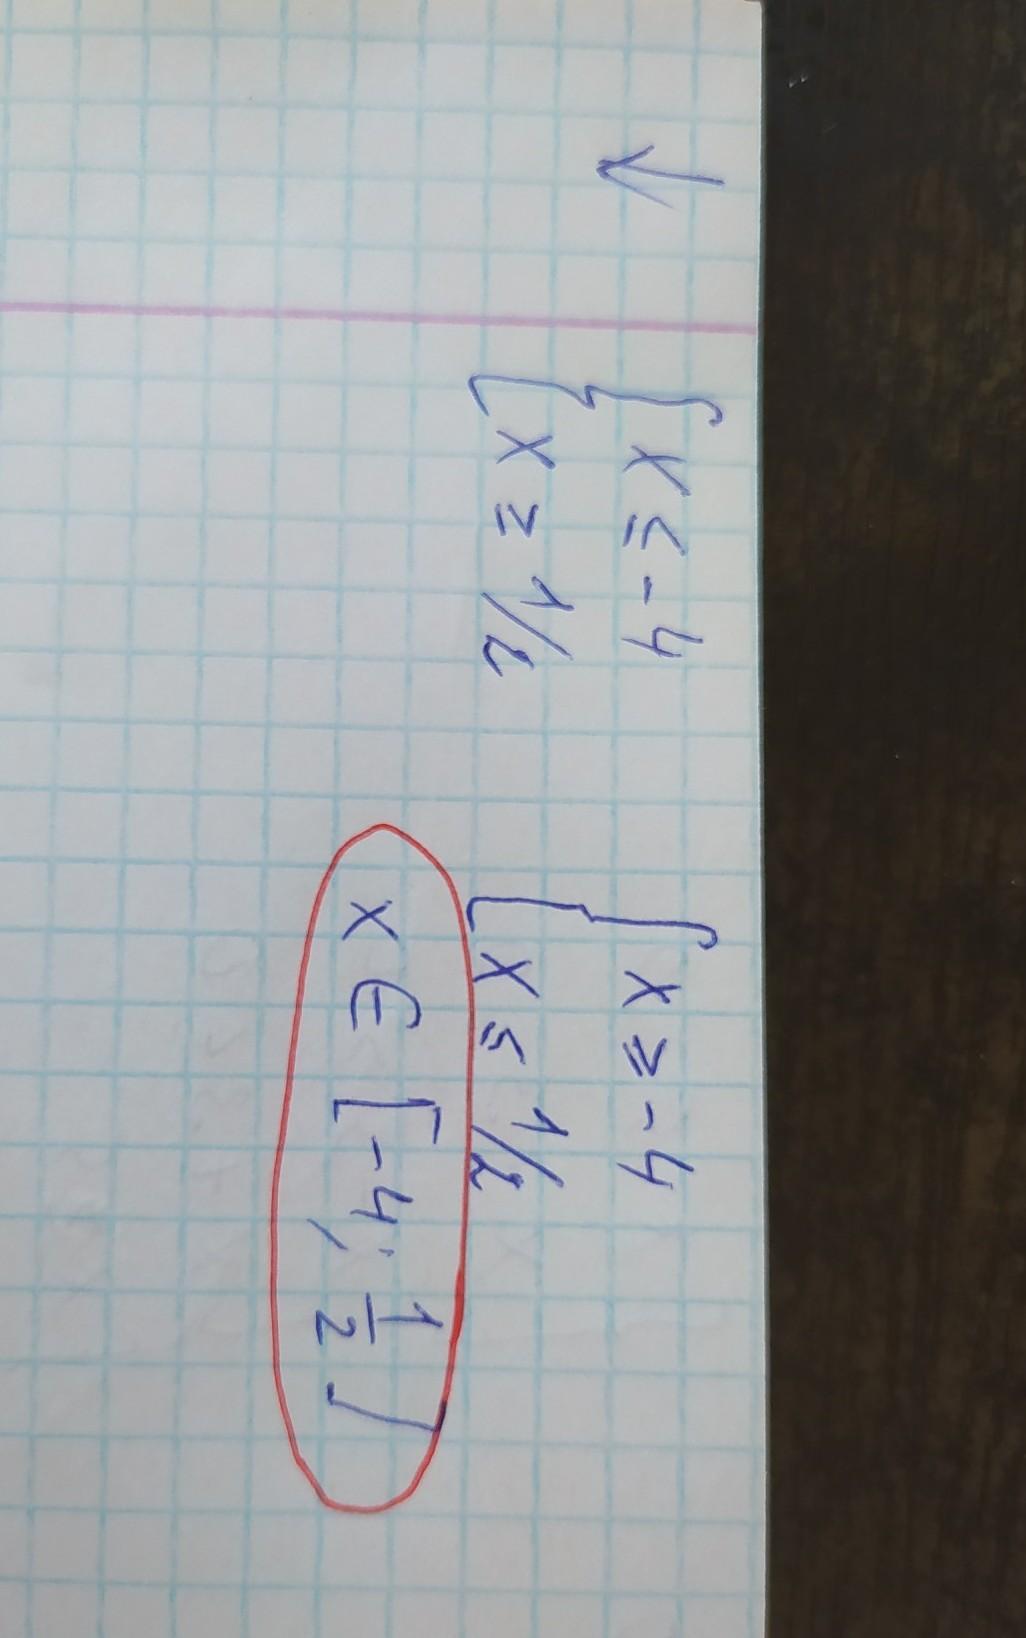 { x ≤ -4
x ≥ 1/2
{ x ≥ -4
x ≤ 1/2
x ∈ [-4; 1/2]